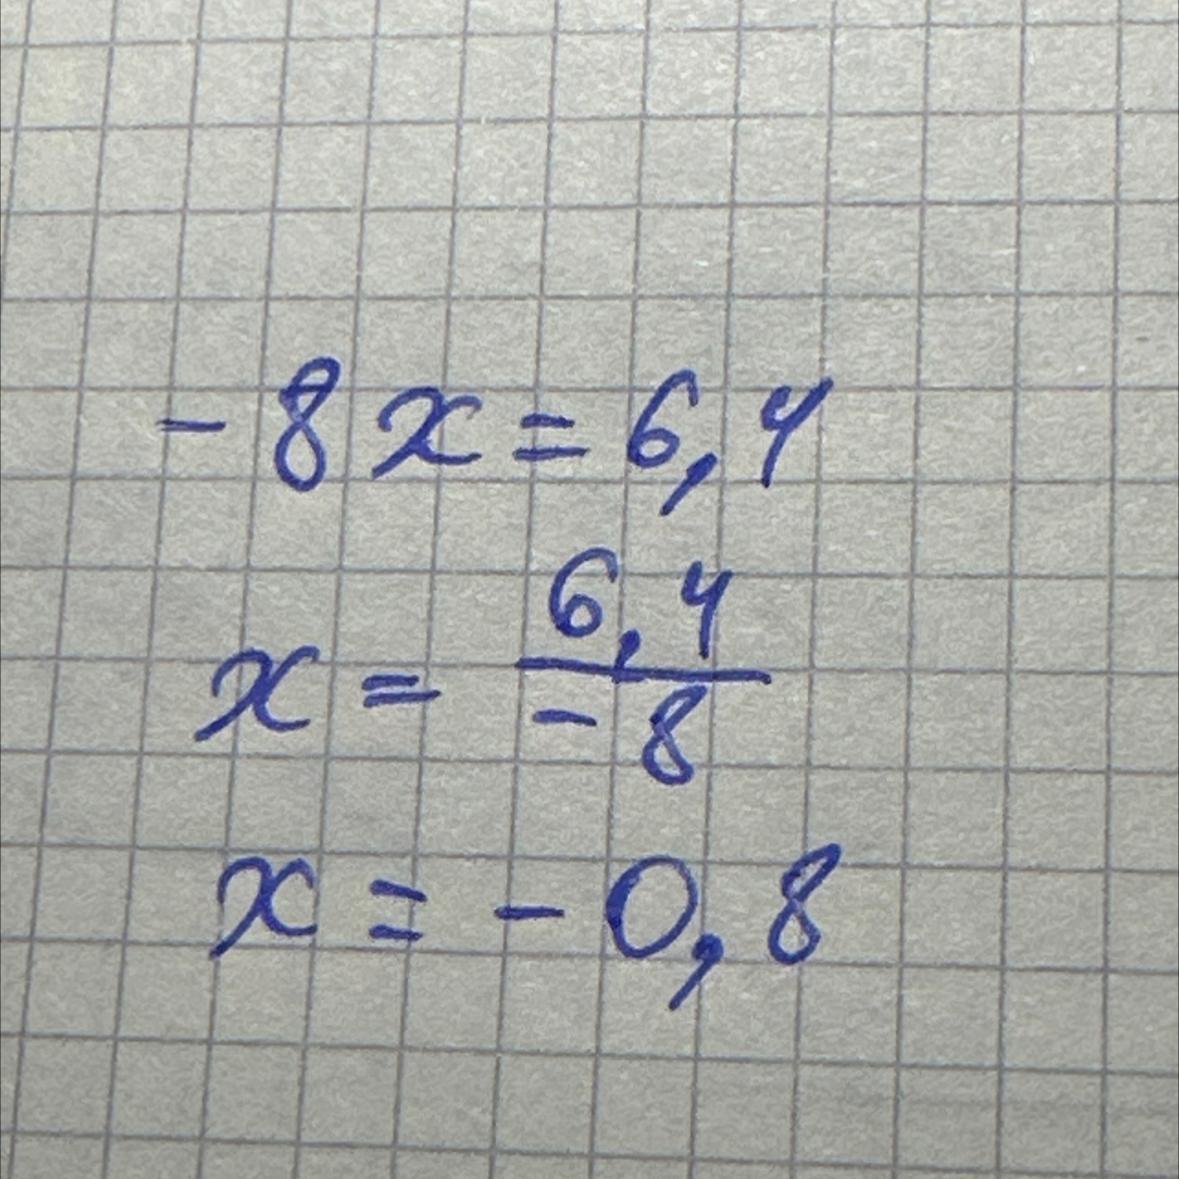 -8x=6,4
x = 6,4/-8
x = -0,8